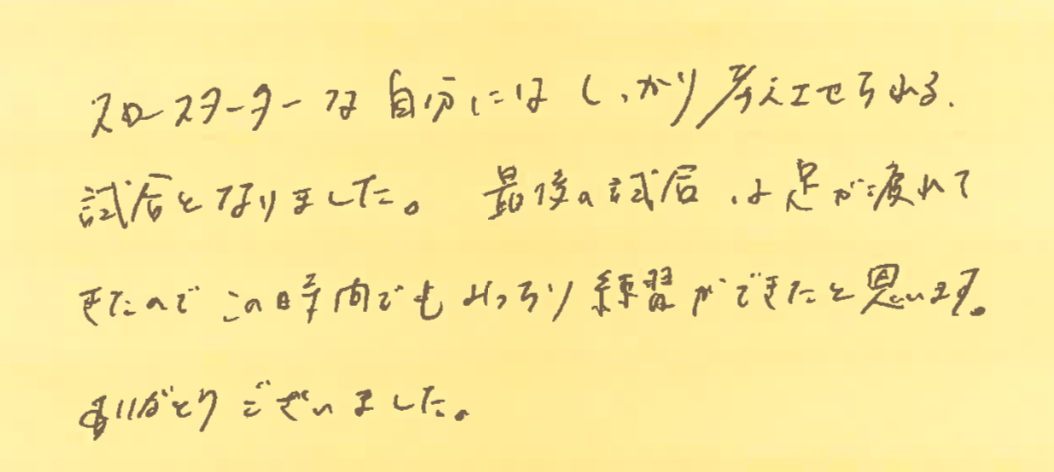 スロースターターな自分にはしっかり考えさせられる
試合となりました。 最後の試合は足が疲れて
きたのでこの時間でもみっちり練習ができたと思います。
ありがとうございました。